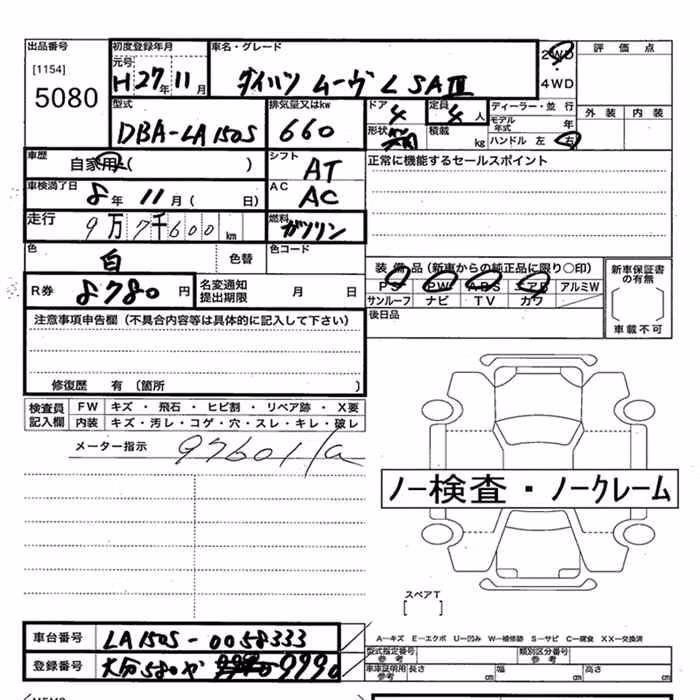 出品番号
[1154]
5080
初度登録年月
元号
H27年11月
車名・グレード
ダイハツ ムーヴ L SAⅢ
2WD
4WD
評価点
外装 内装
型式
DBA-LA150S
排気量又はkw
660
ドア
4
形状
定員
4人
積載 kg
ディーラー・並行
モデル年式 年
ハンドル 左 右
車歴
自家用( )
シフト
AT
正常に機能するセールスポイント
車検満了日
8年11月( 日)
AC
AC
走行
9万7千600km
燃料
ガソリン
色
白
色替
色コード
装備品(新車からの純正品に限り○印)
PS PW ABS エアB アルミW
サンルーフ ナビ TV カワ
新車保証書の有無
車載不可
R券
8780円
名変通知提出期限 月 日
後日品
注意事項申告欄(不具合内容等は具体的に記入して下さい)
修復歴 有(箇所 )
検査員記入欄
FW キズ・飛石・ヒビ割・リペア跡・X要
内装 キズ・汚レ・コゲ・穴・スレ・キレ・破レ
メーター指示
ノー検査・ノークレーム
スペアT
[ ]
A-キズ E-エクボ U-凹み W-補修跡 S-サビ C-腐食 XX-交換済
車台番号
LA150S-0058333
型式指定番号
参考
類別区分番号
参考
登録番号
大分580や 9990
車庫証明用
参考
長さ cm
幅 cm
高さ cm
MEMO